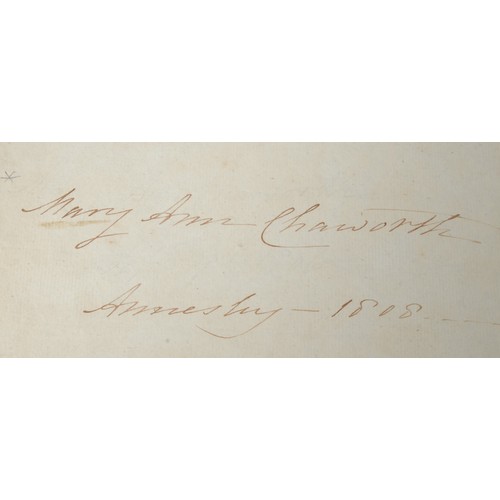 Mary Ann Chaworth
Annesley - 1808